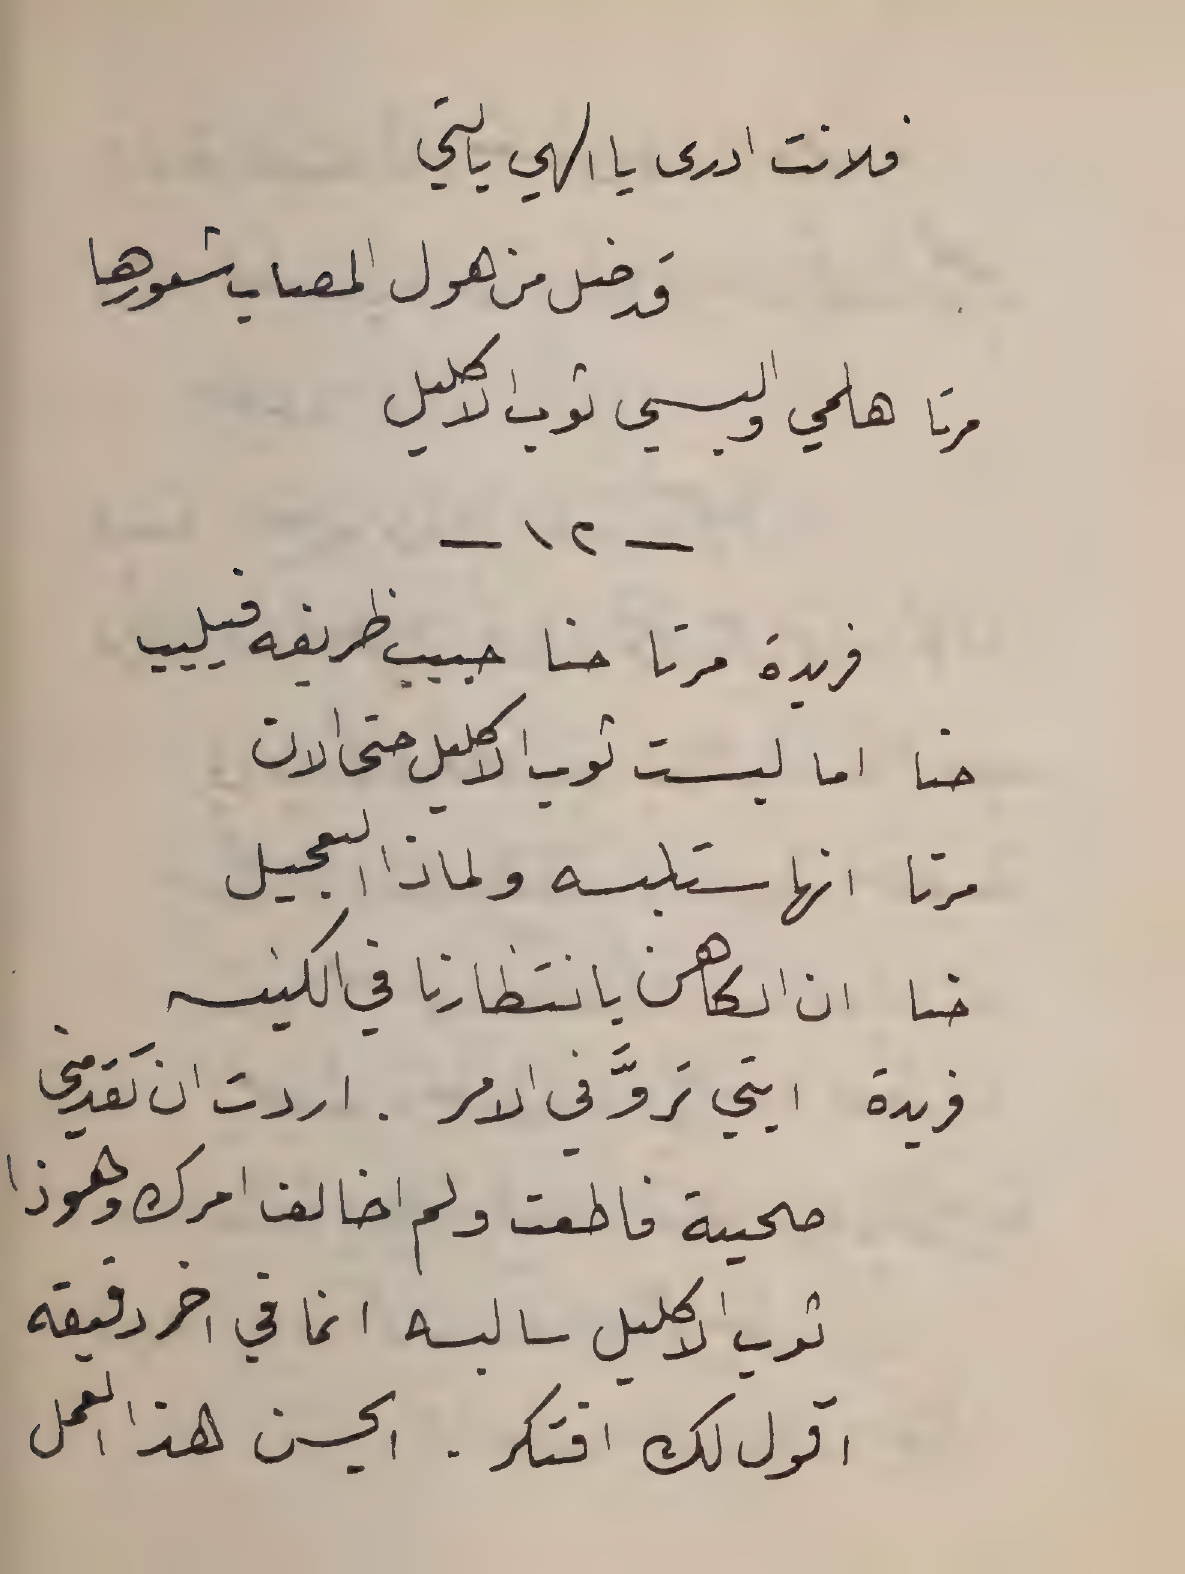 فلانت ادرى يا الهي بالتي
قد ضل من هول المصاب شعورها
مرتا هلمي والبسي ثوب الاكليل
— ١٢ —
فريدة مرتا حنا حبيب ظريفه فيليب
حنا اما لبست ثوب الاكليل حتى الان
مرتا انها ستلبسه ولماذا التعجيل
حنا ان الكاهن بانتظارنا في الكنيسه
فريدة ابتي تروَّ في الامر . اردت ان تقدمني
ضحية فاطعت ولم اخالف امرك وهوذا
ثوب الاكليل سالبسه انما في اخر دقيقه
اقول لك افتكر . ايحسن هذا العمل